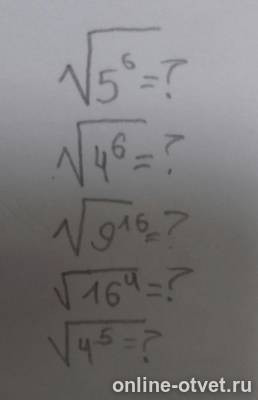 √5⁶=?
√4⁶=?
√9¹⁶=?
√16⁴=?
√4⁵=?
online-otvet.ru